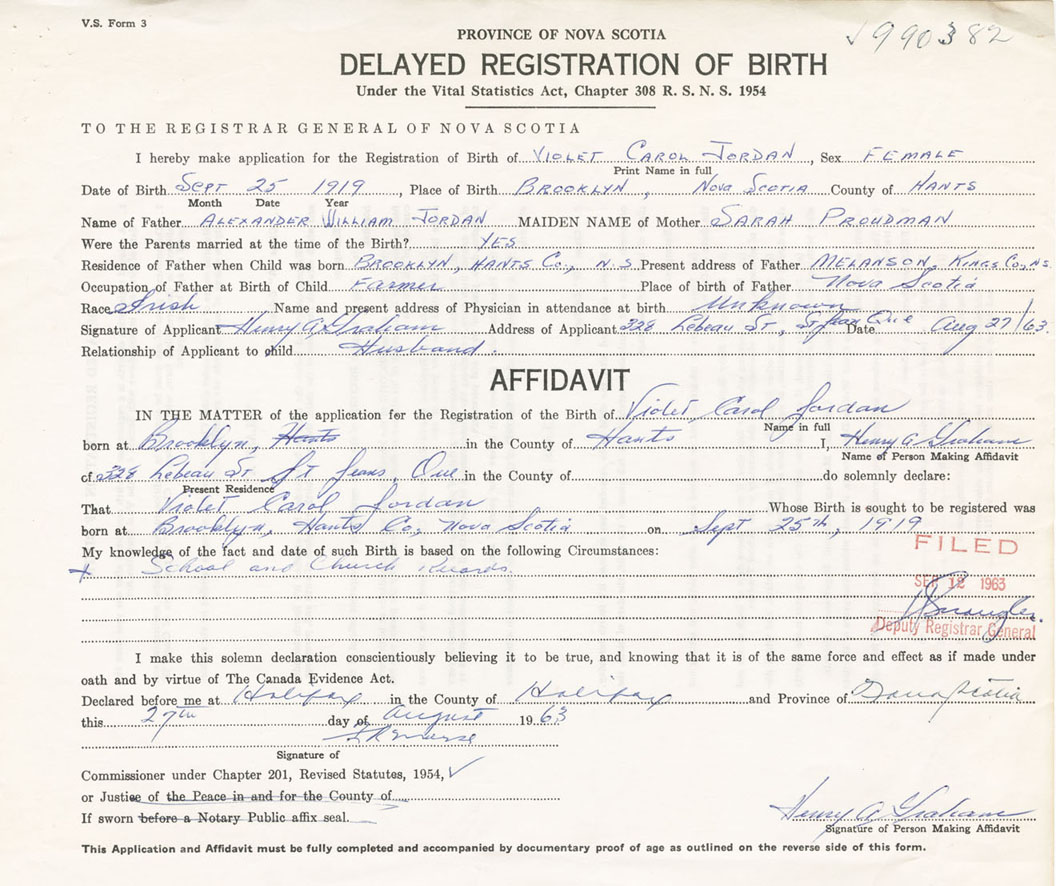 V.S. Form 3
PROVINCE OF NOVA SCOTIA
✓990382
DELAYED REGISTRATION OF BIRTH
Under the Vital Statistics Act, Chapter 308 R. S. N. S. 1954
TO THE REGISTRAR GENERAL OF NOVA SCOTIA
I hereby make application for the Registration of Birth of VIOLET CAROL JORDAN, Sex FEMALE
Print Name in full
Date of Birth SEPT 25 1919, Place of Birth BROOKLYN, NOVA SCOTIA County of HANTS
Month Date Year
Name of Father ALEXANDER WILLIAM JORDAN MAIDEN NAME of Mother SARAH PROUDMAN
Were the Parents married at the time of the Birth? YES
Residence of Father when Child was born BROOKLYN, HANTS CO., N.S. Present address of Father MELANSON, KINGS CO, N.S.
Occupation of Father at Birth of Child Farmer Place of birth of Father Nova Scotia
Race Irish Name and present address of Physician in attendance at birth Unknown
Signature of Applicant Henry A. Graham Address of Applicant 328 Lebeau St, St Jean Que Date Aug 27/63.
Relationship of Applicant to child Husband.
AFFIDAVIT
IN THE MATTER of the application for the Registration of the Birth of Violet Carol Jordan
Name in full
born at Brooklyn, Hants in the County of Hants I, Henry A Graham
Name of Person Making Affidavit
of 328 Lebeau St St Jeans, Que in the County of do solemnly declare:
Present Residence
That Violet Carol Jordan Whose Birth is sought to be registered was
born at Brooklyn, Hants Co, Nova Scotia on Sept 25th, 1919
My knowledge of the fact and date of such Birth is based on the following Circumstances:
School and Church Records.
FILED
SEP 12 1963
Deputy Registrar General
I make this solemn declaration conscientiously believing it to be true, and knowing that it is of the same force and effect as if made under
oath and by virtue of The Canada Evidence Act.
Declared before me at Halifax in the County of Halifax and Province of Nova Scotia
this 27th day of August 1963
Signature of
Commissioner under Chapter 201, Revised Statutes, 1954, ✓
or Justice of the Peace in and for the County of
If sworn before a Notary Public affix seal.
Henry A Graham
Signature of Person Making Affidavit
This Application and Affidavit must be fully completed and accompanied by documentary proof of age as outlined on the reverse side of this form.